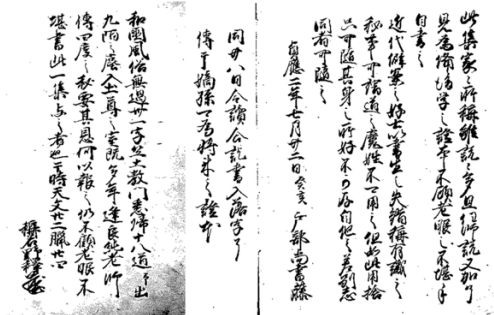 此集家々所称雖説々多且任師説又加了
見為備後学之證本不顧老眼之不堪手
自書之
近代僻案之好士以書生之失錯称有識之
秘事可謂道之魔姓不可用之但如此用捨
只可随其身之所好不可存自他之差別志
同者可随之
貞應二年七月廿二日 癸亥 戸部尚書藤
同廿八日令讀合訖書入落字了
傳于嫡孫可為将来之證本
和國風俗無過卅一字教門悉帰十八道出
九陌之塵入之室既多年逢良老師
傳四度之秘要其恩何以報之仍不顧老眼不
堪書此一集与之者也于時天文廿二臘廿四
称名野釈